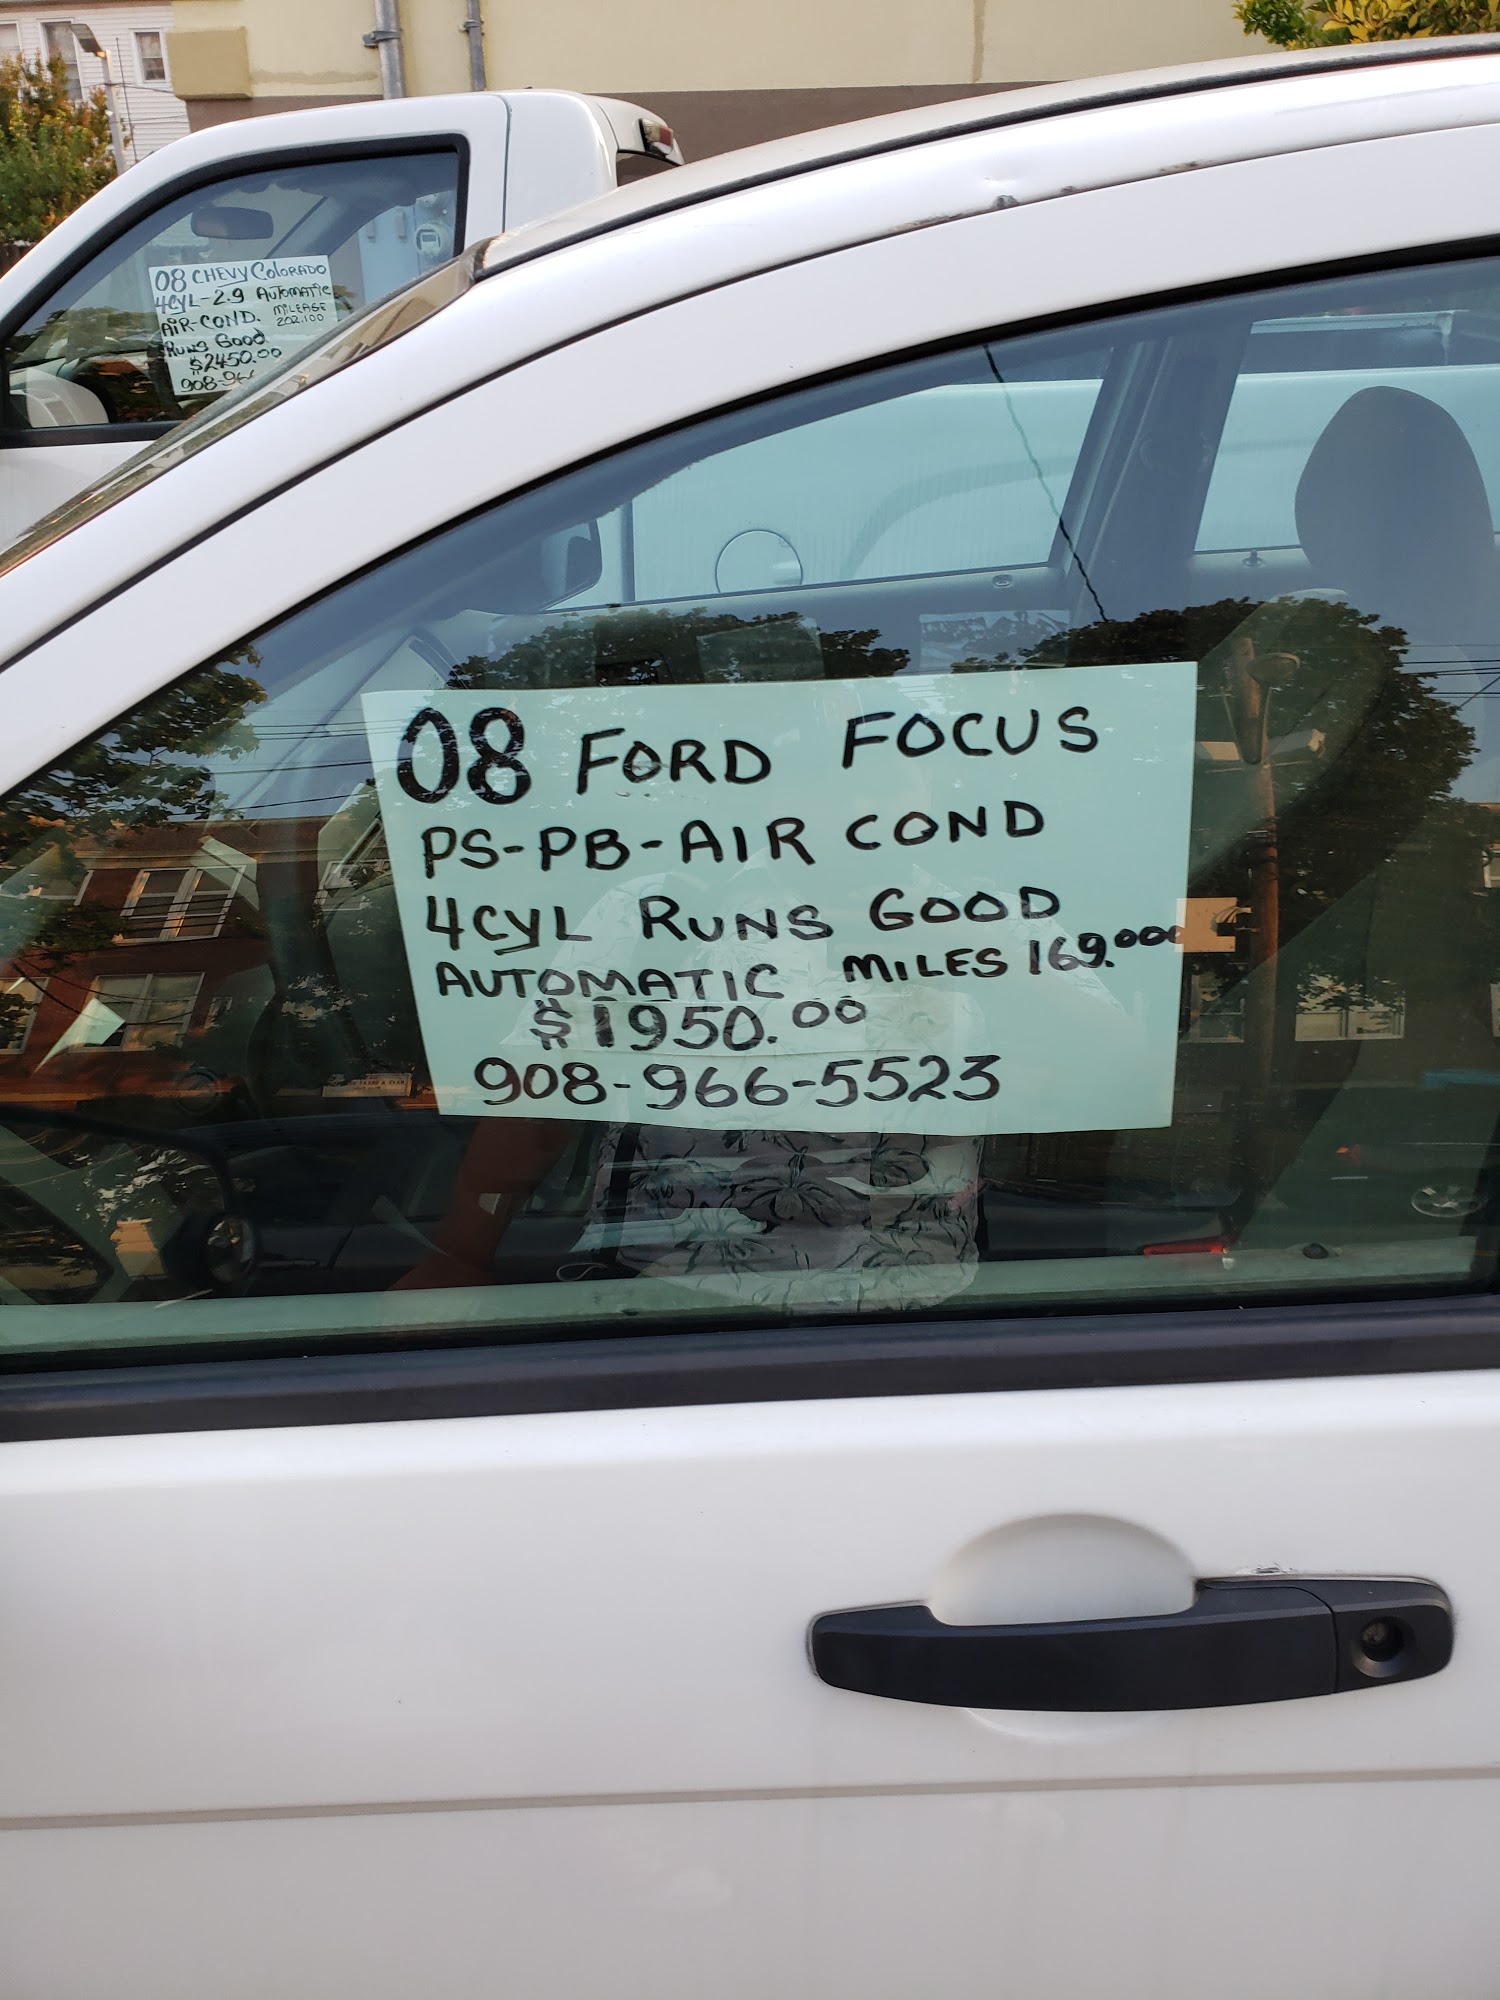 08 CHEVY COLORADO
4CYL-2.9 AUTOMATIC
AIR-COND. MILEAGE
202.100
RUNS GOOD
$2450.00
908-966
08 FORD FOCUS
PS-PB-AIR COND
4CYL RUNS GOOD
AUTOMATIC MILES 169.000
$1950.00
908-966-5523